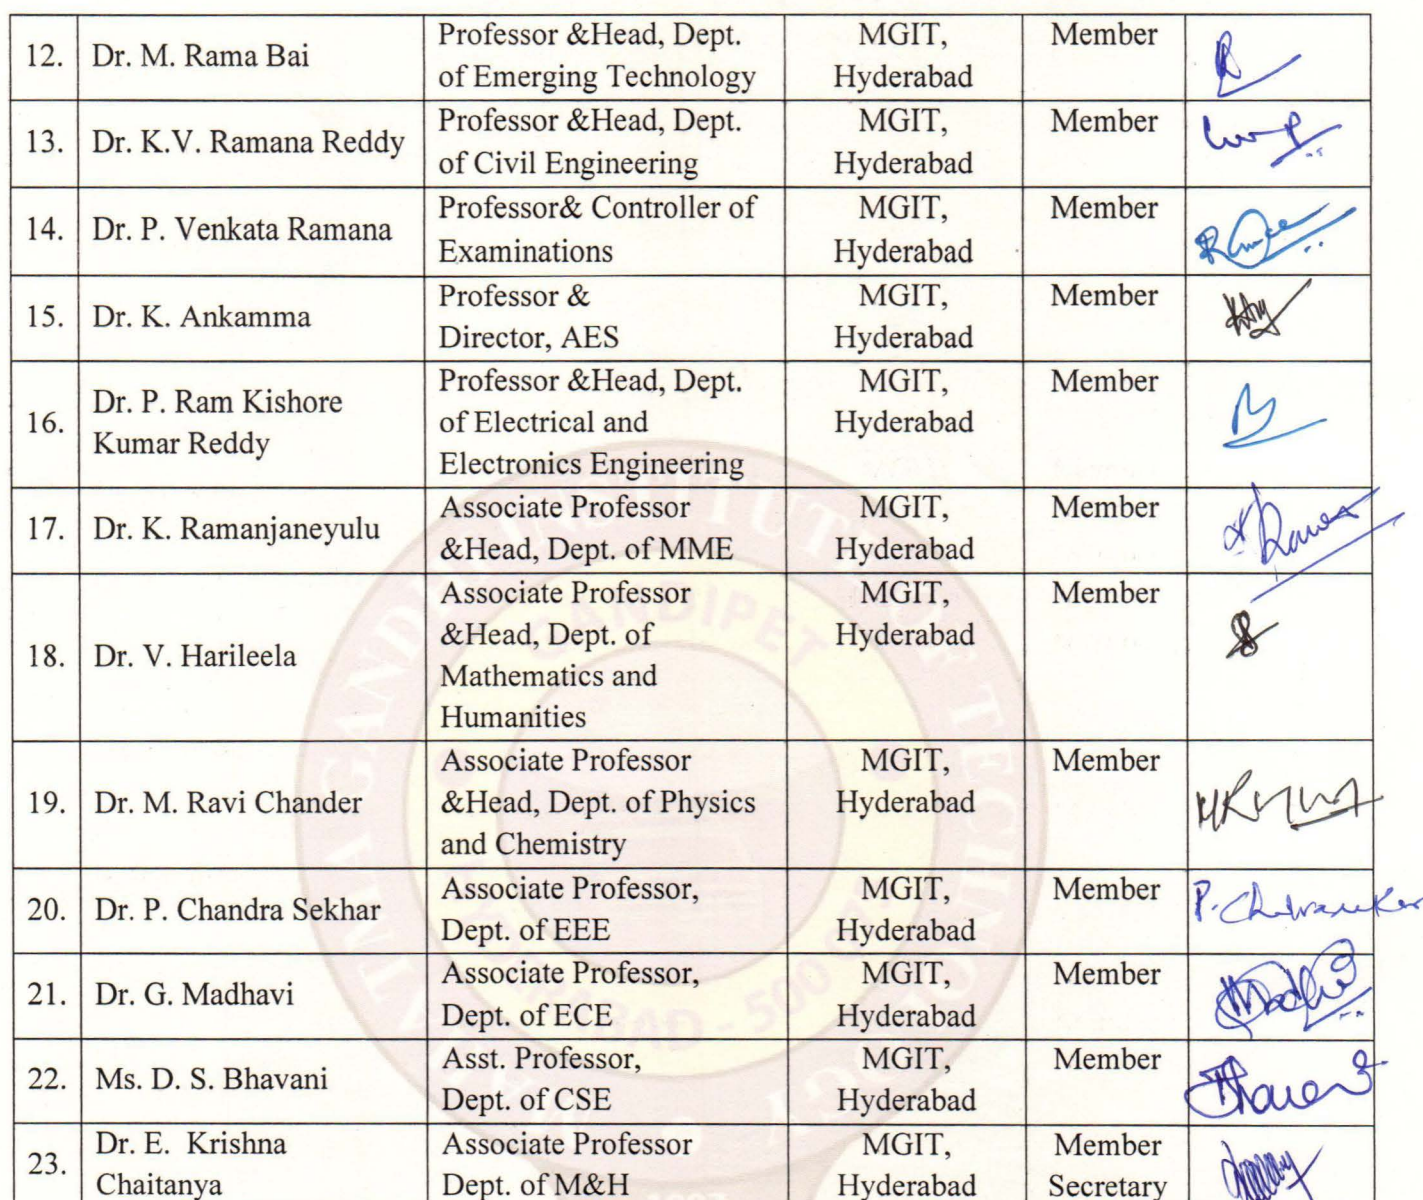 12. Dr. M. Rama Bai Professor &Head, Dept. of Emerging Technology MGIT, Hyderabad Member
13. Dr. K.V. Ramana Reddy Professor &Head, Dept. of Civil Engineering MGIT, Hyderabad Member
14. Dr. P. Venkata Ramana Professor& Controller of Examinations MGIT, Hyderabad Member
15. Dr. K. Ankamma Professor & Director, AES MGIT, Hyderabad Member
16. Dr. P. Ram Kishore Kumar Reddy Professor &Head, Dept. of Electrical and Electronics Engineering MGIT, Hyderabad Member
17. Dr. K. Ramanjaneyulu Associate Professor &Head, Dept. of MME MGIT, Hyderabad Member
18. Dr. V. Harileela Associate Professor &Head, Dept. of Mathematics and Humanities MGIT, Hyderabad Member
19. Dr. M. Ravi Chander Associate Professor &Head, Dept. of Physics and Chemistry MGIT, Hyderabad Member
20. Dr. P. Chandra Sekhar Associate Professor, Dept. of EEE MGIT, Hyderabad Member
21. Dr. G. Madhavi Associate Professor, Dept. of ECE MGIT, Hyderabad Member
22. Ms. D. S. Bhavani Asst. Professor, Dept. of CSE MGIT, Hyderabad Member
23. Dr. E. Krishna Chaitanya Associate Professor Dept. of M&H MGIT, Hyderabad Member Secretary